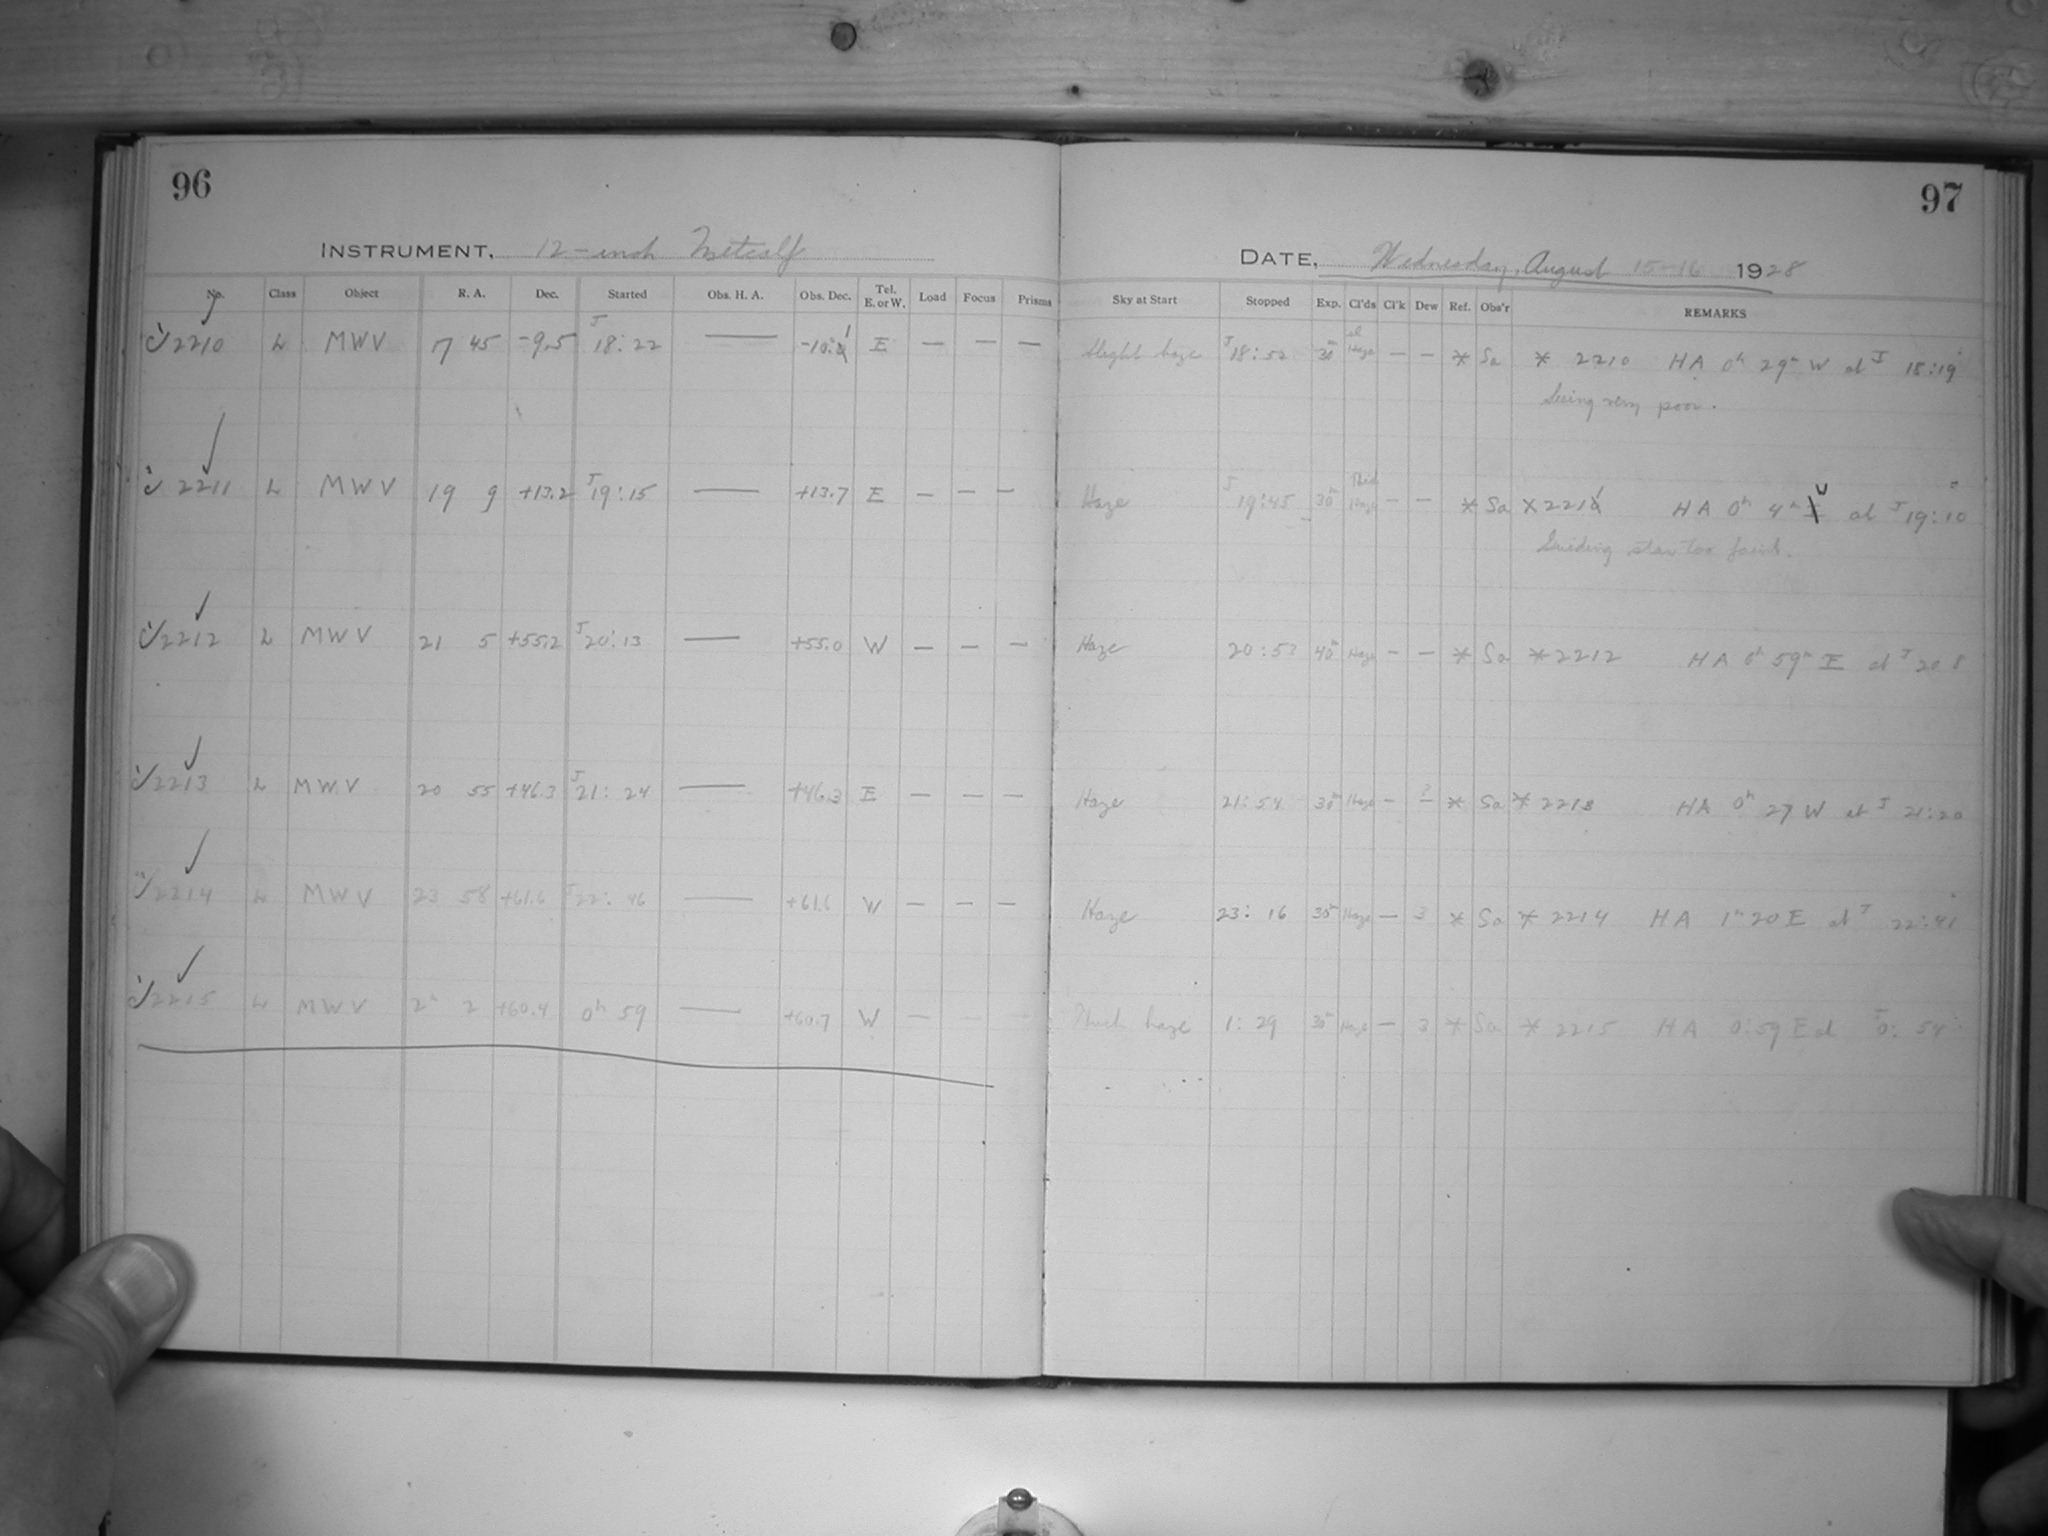 96
INSTRUMENT. 12-inch Metcalf
No. Class Object R. A. Dec. Started Obs. H. A. Obs. Dec. Tel. E. or W. Load Focus Prisms
2210 L MWV 17 45 -9.5 J 18:22 — E — — —
2211 L MWV 19 9 +13.2 J 19:15 — +13.7 E — — —
2212 L MWV 21 5 +55.2 J 20:13 — +55.0 W — — —
2213 L MWV 20 55 +46.3 J 21:24 — +46.3 E — — —
2214 L MWV 23 58 +61.6 J 22:46 — +61.6 W — — —
2215 L MWV 2h 2 +60.4 0h 59 — +60.7 W — — —
97
DATE, Wednesday, August 15-16 1928
Sky at Start Stopped Exp. Cl'ds Cl'k Dew Ref. Obs'r REMARKS
Slight haze J 18:52 30m sl Haze — — * Sa * 2210 HA 0h 29m W at J 18:19
Seeing very poor.
Haze J 19:45 30m Haze — — * Sa * 2211 HA 0h 4m W at J 19:10
Guiding star too faint.
Haze 20:53 40m Haze — — * Sa * 2212 HA 0h 59m E at J 20 8
Haze 21:54 30m Haze — ? * Sa * 2213 HA 0h 27 W at J 21:20
Haze 23:16 30m Haze — 3 * Sa * 2214 HA 1h 20 E at J 22:41
Thick haze 1:29 30m Haze — 3 * Sa * 2215 HA 0:59 E at J 0:54